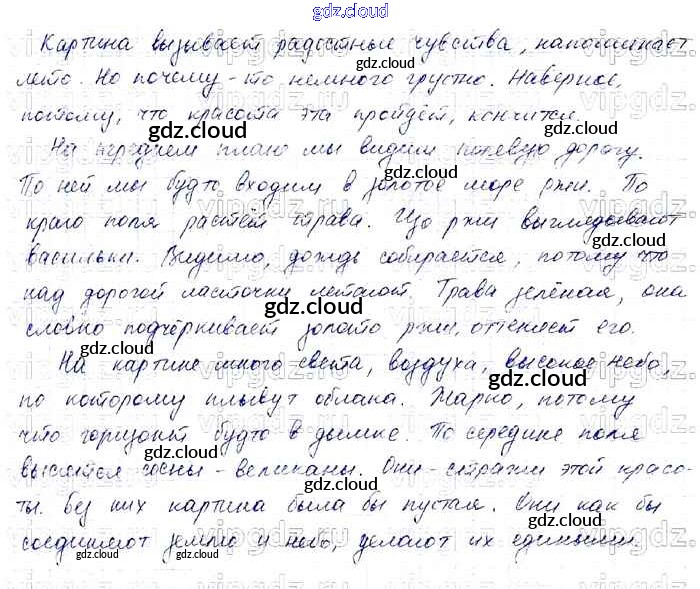 gdz.cloud
Картина вызывает радостные чувства, напоминает
лето. Но почему-то немного грустно. Наверное,
потому, что красота эта пройдёт, кончится.
На переднем плане мы видим полевую дорогу.
По ней мы будто входим в золотое море ржи. По
краю поля растёт трава. Изо ржи выглядывают
васильки. Видимо, дождь собирается, потому что
над дорогой ласточки летают. Трава зелёная, она
словно подчёркивает золото ржи, оттеняет его.
На картине много света, воздуха, высокое небо,
по которому плывут облака. Жарко, потому
что горизонт будто в дымке. По середине поля
высятся сосны-великаны. Они-стражи этой красо-
ты. Без них картина была бы пустая. Они как бы
соединяют землю и небо, делают их едиными.